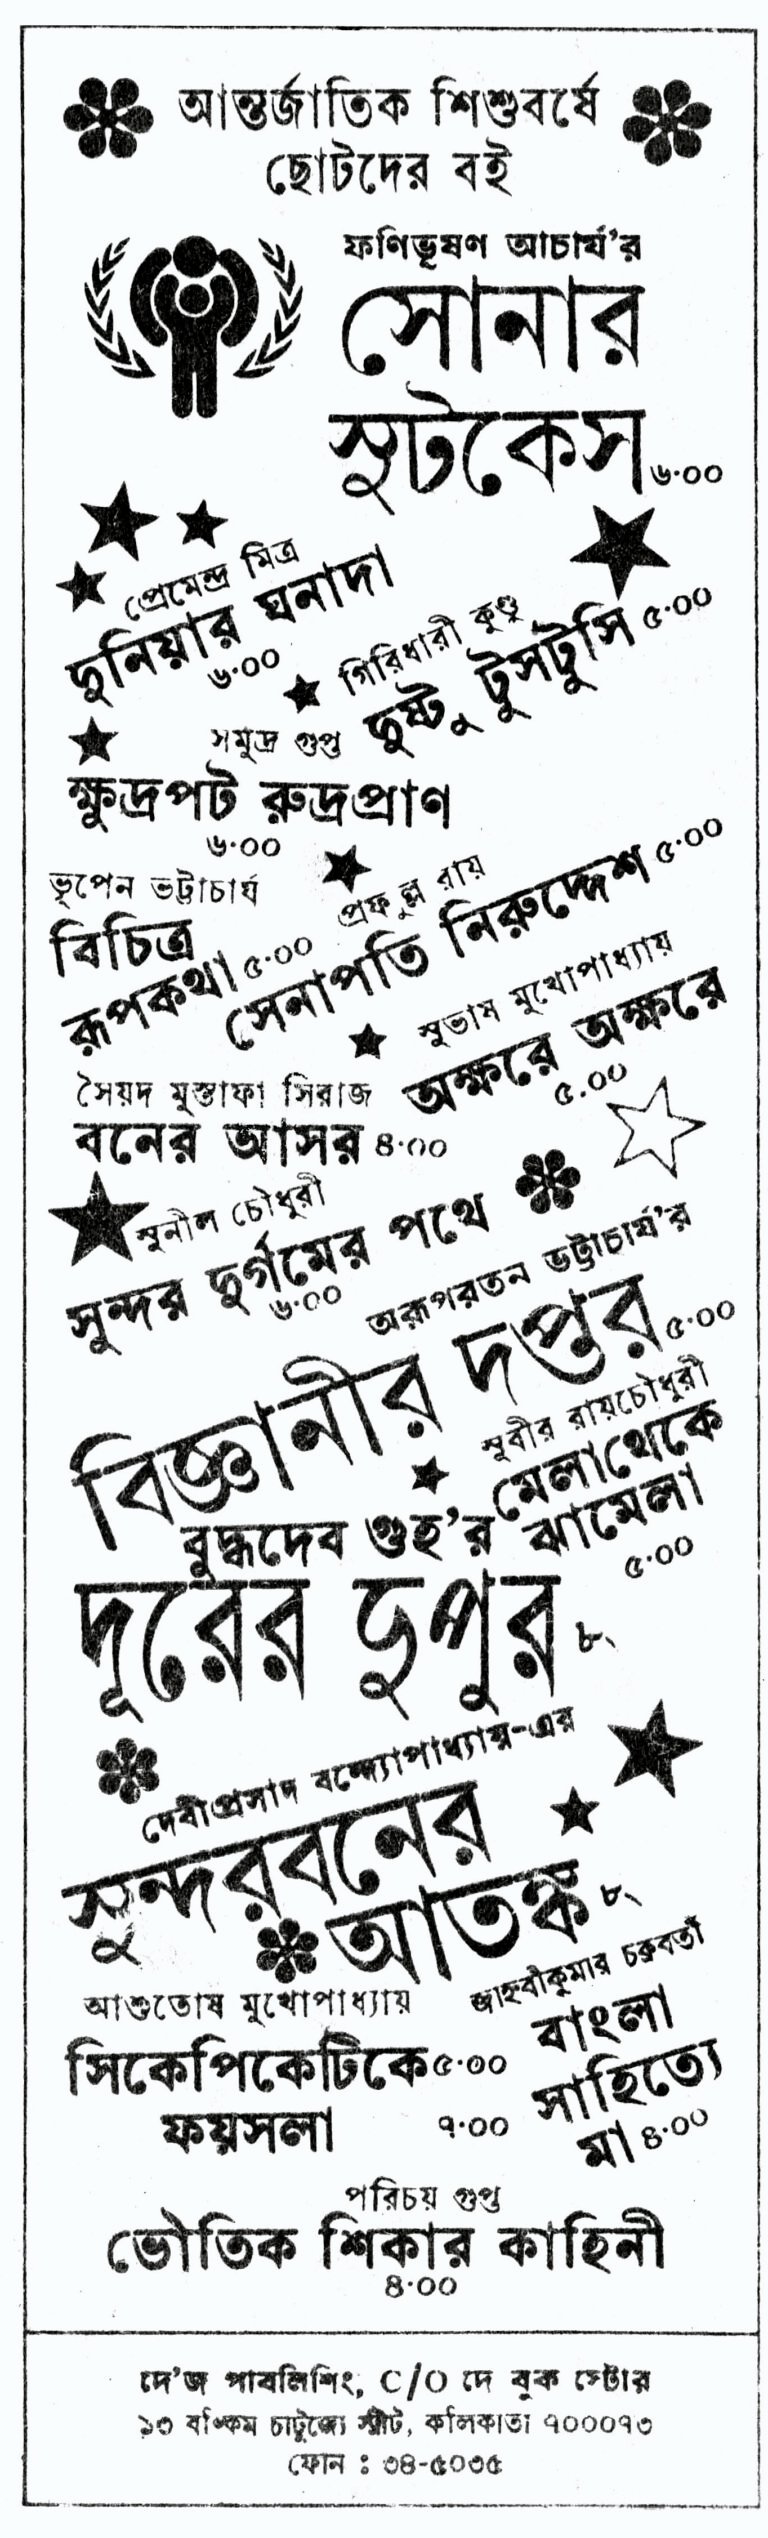 আন্তর্জাতিক শিশুবর্ষে
ছোটদের বই
ফণিভূষণ আচার্য'র
সোনার
সুটকেস ৬·০০
প্রেমেন্দ্র মিত্র
দুনিয়ার ঘনাদা
৬·০০
গিরিধারী কুণ্ডু
দুষ্টু টুসটুসি ৫·০০
সমুদ্র গুপ্ত
ক্ষুদ্রপট রুদ্রপ্রাণ
৬·০০
ভূপেন ভট্টাচার্য
বিচিত্র
রূপকথা ৫·০০
প্রফুল্ল রায়
সেনাপতি নিরুদ্দেশ ৫·০০
সুভাষ মুখোপাধ্যায়
অক্ষরে অক্ষরে
৫.০০
সৈয়দ মুস্তাফা সিরাজ
বনের আসর ৪·০০
সুনীল চৌধুরী
সুন্দর দুর্গমের পথে
৬·০০
অরূপরতন ভট্টাচার্য'র
বিজ্ঞানীর দপ্তর ৫·০০
সুবীর রায়চৌধুরী
মেলাথেকে
ঝামেলা
৫·০০
বুদ্ধদেব গুহ'র
দূরের দুপুর ৮৲
দেবীপ্রসাদ বন্দ্যোপাধ্যায়-এর
সুন্দরবনের
আতঙ্ক ৮৲
আশুতোষ মুখোপাধ্যায়
সিকেপিকেটিকে ৫·০০
ফয়সলা ৭·০০
জাহ্নবীকুমার চক্রবর্তী
বাংলা
সাহিত্যে
মা ৪·০০
পরিচয় গুপ্ত
ভৌতিক শিকার কাহিনী
৪·০০
দে'জ পাবলিশিং, C/O দে বুক স্টোর
১৩ বঙ্কিম চাটুজ্যে স্ট্রীট, কলিকাতা ৭০০০৭৩
ফোন : ৩৪-৫০৩৫